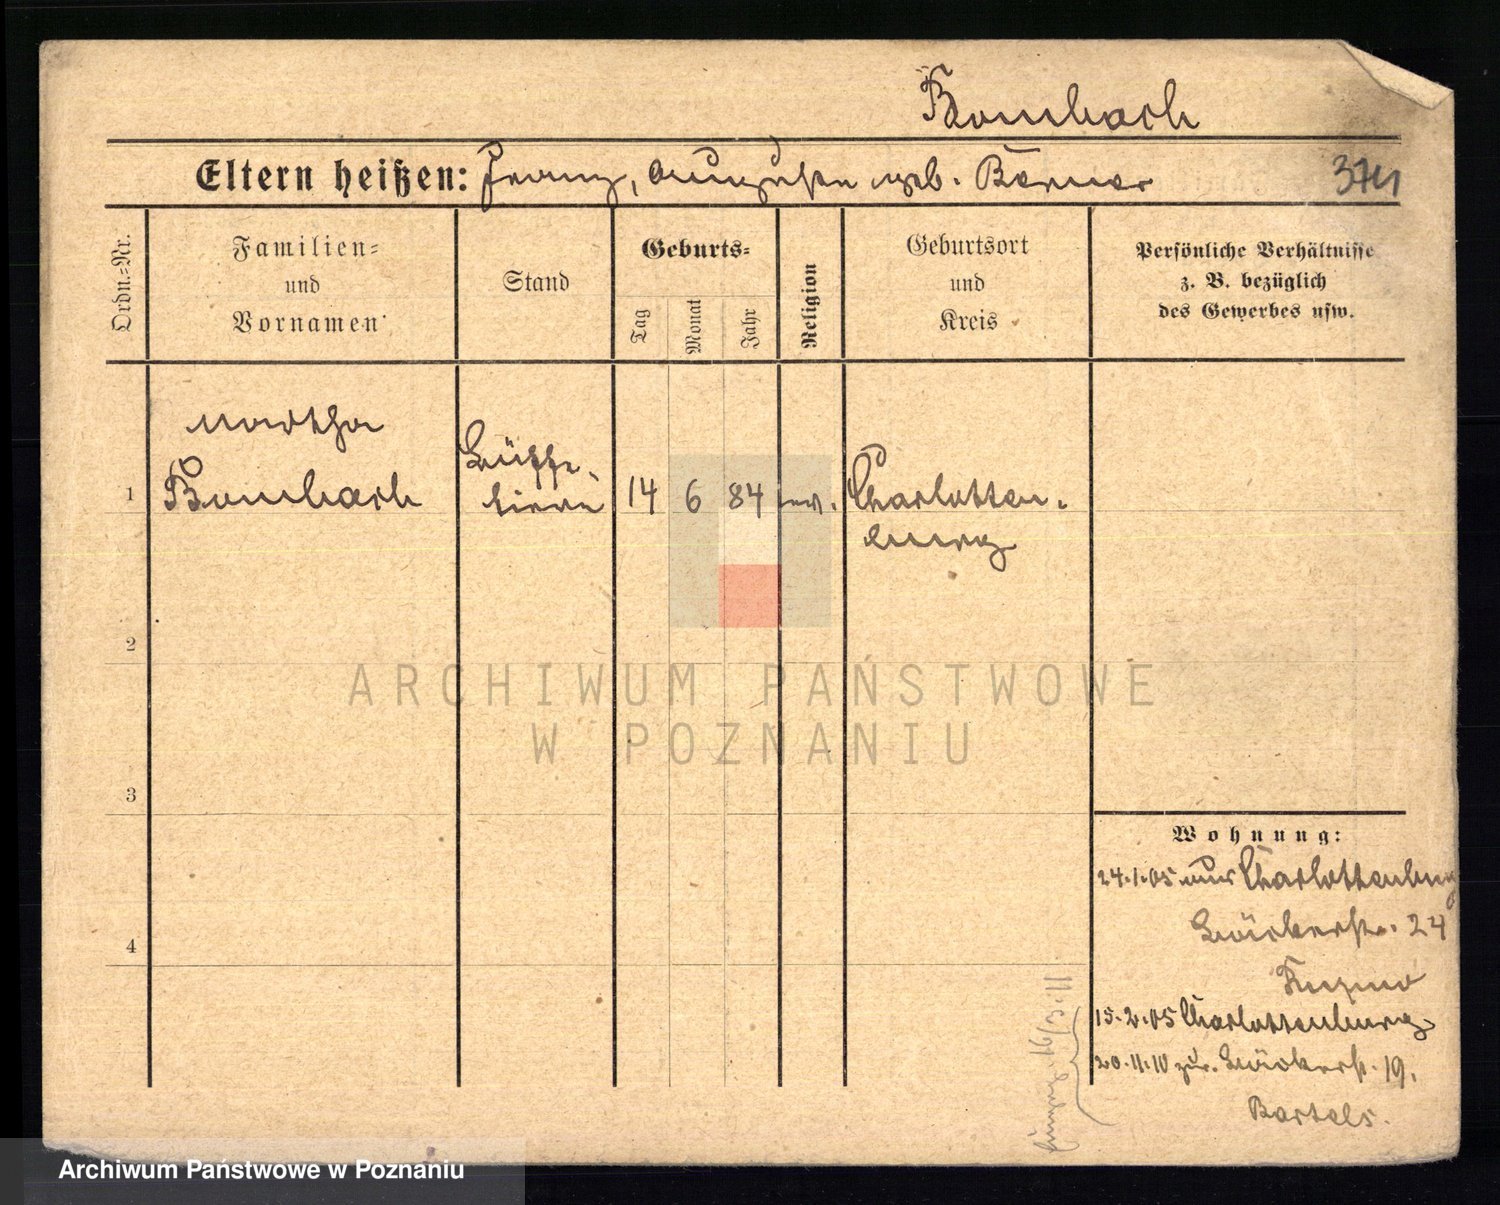 Bombach
Eltern heißen: Franz, Auguste geb. Berner
3711
Ordn.-Nr.
Familien-
und
Vornamen
Stand
Geburts-
Tag
Monat
Jahr
Religion
Geburtsort
und
Kreis
Persönliche Verhältnisse
z. B. bezüglich
des Gewerbes usw.
Martha
1 Bombach
Büffe-
tiere
14 6 84 ev. Charlotten-
burg
2
ARCHIWUM PAŃSTWOWE
W POZNANIU
3
Wohnung:
24.1.05 aus Charlottenburg
Bäckerstr. 24
4
15.2.05 Charlottenburg
20.11.10 zur. Bäckerstr. 19.
Bartels.
19/3.11
Archiwum Państwowe w Poznaniu